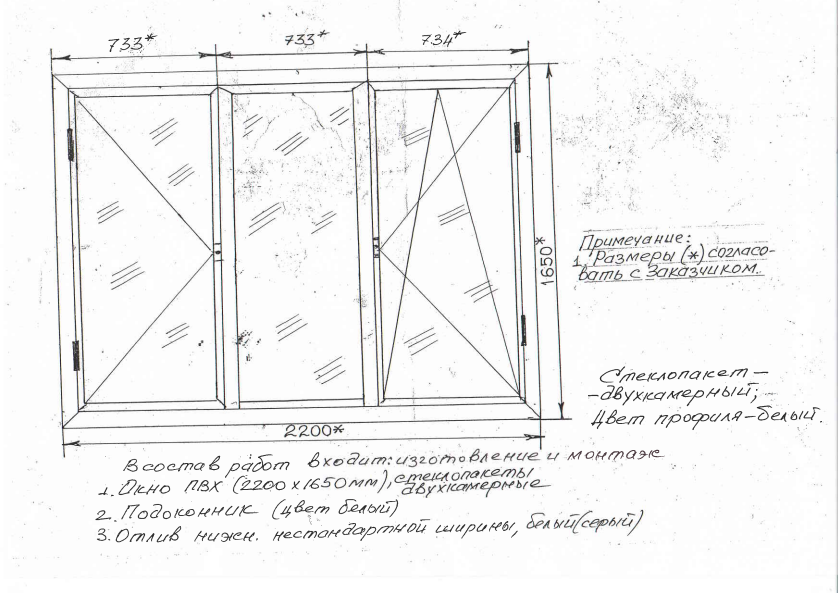 733* 733* 734*
1650*
Примечание:
1. Размеры (*) согласо-
вать с Заказчиком.
Стеклопакет-
-двухкамерный;
Цвет профиля-белый.
2200*
В состав работ входит: изготовление и монтаж
1. Окно ПВХ (2200х1650мм), стеклопакеты
двухкамерные
2. Подоконник (цвет белый)
3. Отлив нижн. нестандартной ширины, белый (серый)